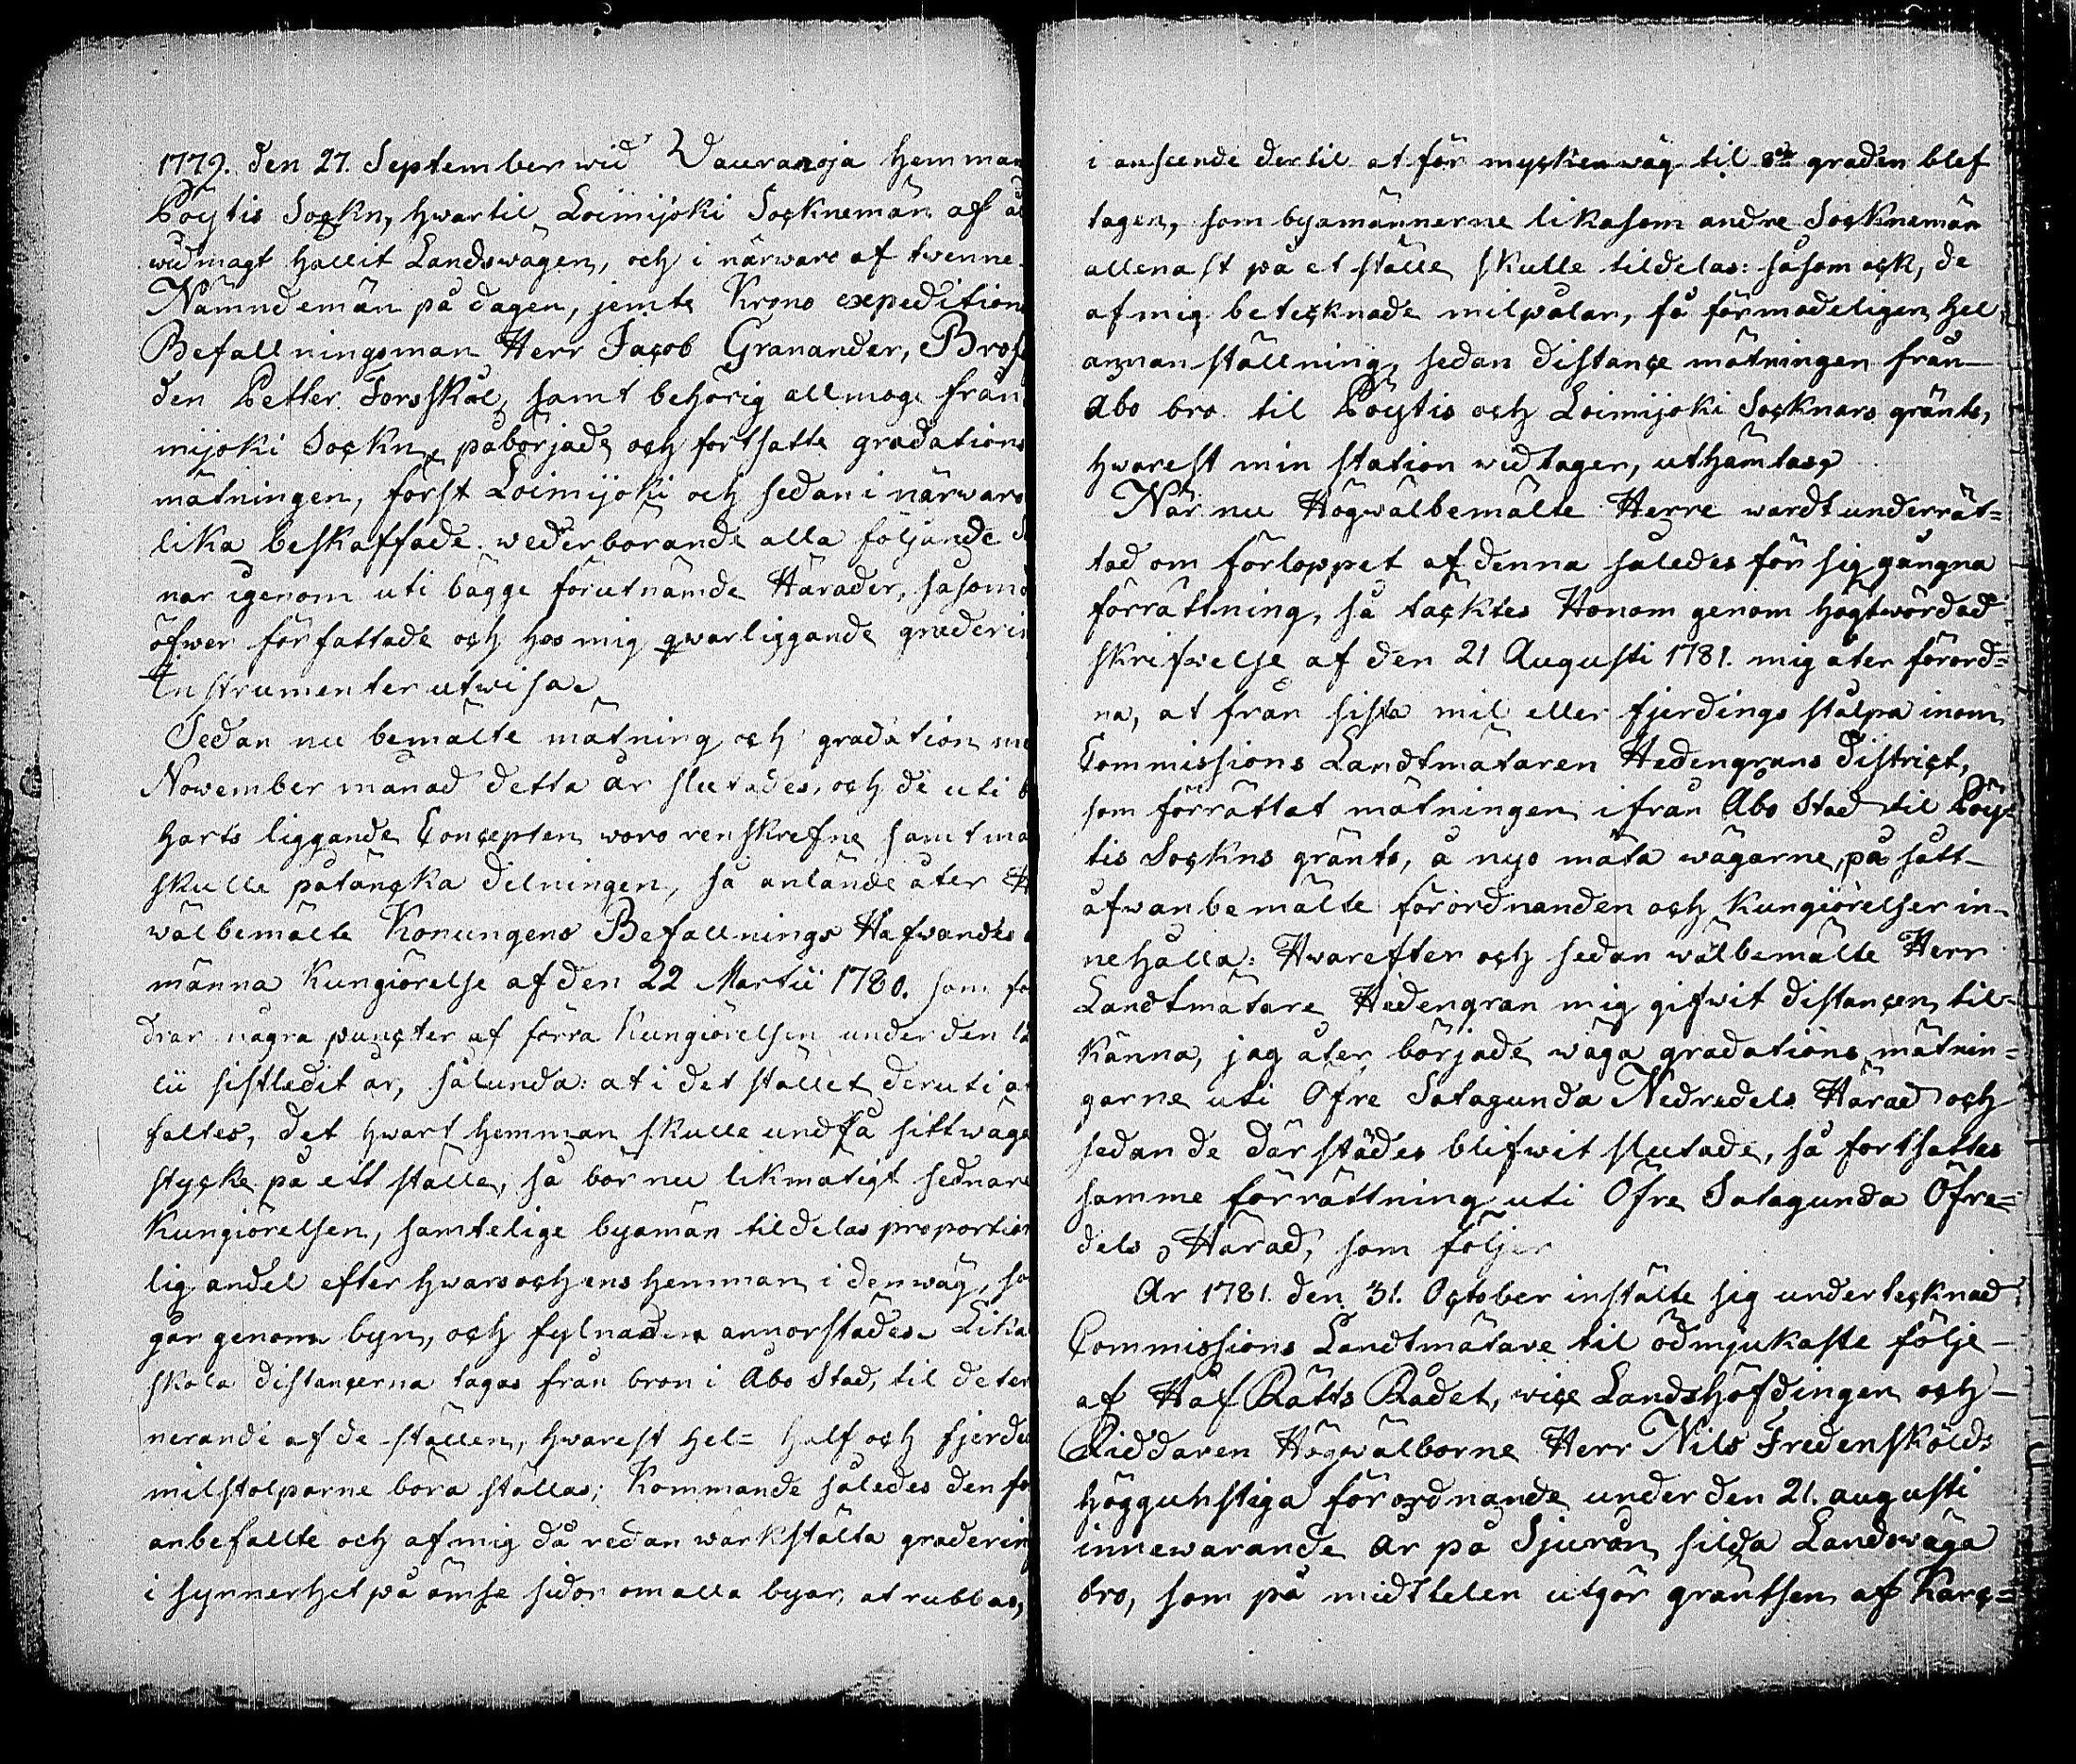 1779. den 27. September wid Vauranoja hemman
Pöytis Sockn, hwartil Loimijoki Socknemän af
widmagt hållit Landswägen, och i närwaro af twenne
Nämndemän på dagen, jemte Krono expeditions
Befallningsman Herr Jacob Granander,
den Petter Forsskål, samt behörig allmoge från
mijoki Sockn, påbörjade och fortsatte gradations
mätningen, först Loimijoki och sedan i närwaro
lika beskaffade wederbörande alla följande
nar igenom uti bägge förutnämde Härader, såsom
öfwer författade och hos mig qwarliggande graderings
Instrumenter utwisa.
Sedan nu bemälte mätning och gradation
November månad detta år slutades, och de uti
harts liggande Concepten woro renskrefne samt
skulle påtäncka delningen, så anlände åter
wälbemälte Konungens Befallnings Hafwandes
männa Kungiörelse af den 22 Martii 1780. som
drar några puncter af förra Kungiörelsen under den 12
lii sistledit år, sålunda: at i det stället deruti
faltes, det hwart hemman skulle undfå sitt wäga
stycke på ett ställe, så bör nu likmätigt sednare
Kungiörelsen, samtelige byamän tildelas proportion
lig andel efter hwars och ens hemman i den wäg, som
går genom byn, och fylnaden annorstädes. Lika
skola distancerna tagas från bron i Åbo Stad, til deter
nerande af de ställen, hwarest hel= half och fjerdedels
milstolparne böra ställas; Kommande således den
anbefallte och af mig då redan wärkstälta gradering
i synnerhet på ömse sidor om alla byar, at rubbas,
i anseende dertil at för mycken wäg til 8de graden blef
tagen, som byamännerne likasom andre Socknemän
allenast på et ställe skulle tildelas: såsom ock, de
af mig betecknade milpålar, få förmodeligen hel
annan ställning, sedan distance mätningen från
Åbo bro til Pöytis och Loimijoki Socknars gränts,
hwarest min station widtager, uthämtas.
När nu Högwälbemälte Herre wardt underrät=
tad om förloppet af denna således för sig gångna
förrättning, så täcktes Honom genom högtwördad
skrifwelse af den 21 Augusti 1781. mig åter förord=
na, at från sista mil eller fjerdings stålpa inom
Commissions Landtmätaren Hedengrans District,
som förrättat mätningen ifrån Åbo Stad til Pöy=
tis Sockns gränts, å nyo mäta wägarne, på sätt
åfwanbemälte förordnanden och Kungiörelser in=
nehålla: Hwarefter och sedan wälbemälte Herr
Landtmätare Hedengran mig gifwit distancen til=
känna, jag åter började wäga gradations mätnin=
garne uti Öfre Satagunda Nedredels Härad och
sedan de därstädes blifwit slutade, så fortsattes
samme förrättning uti Öfre Satagunda Öfre=
dels Härad, som följer
År 1781. den 31. October instälte sig undertecknad
Commissions Landtmätare til ödmjukaste följe
af HåfRätts Rådet, vice Landshöfdingen och
Riddaren Högwälborne Herr Nils Fredenskölds
höggunstiga förordnande under den 21. augusti
innewarande år på Sjurån silda Landswäga
bro, som på midttelen utgör gräntsen af Karc=